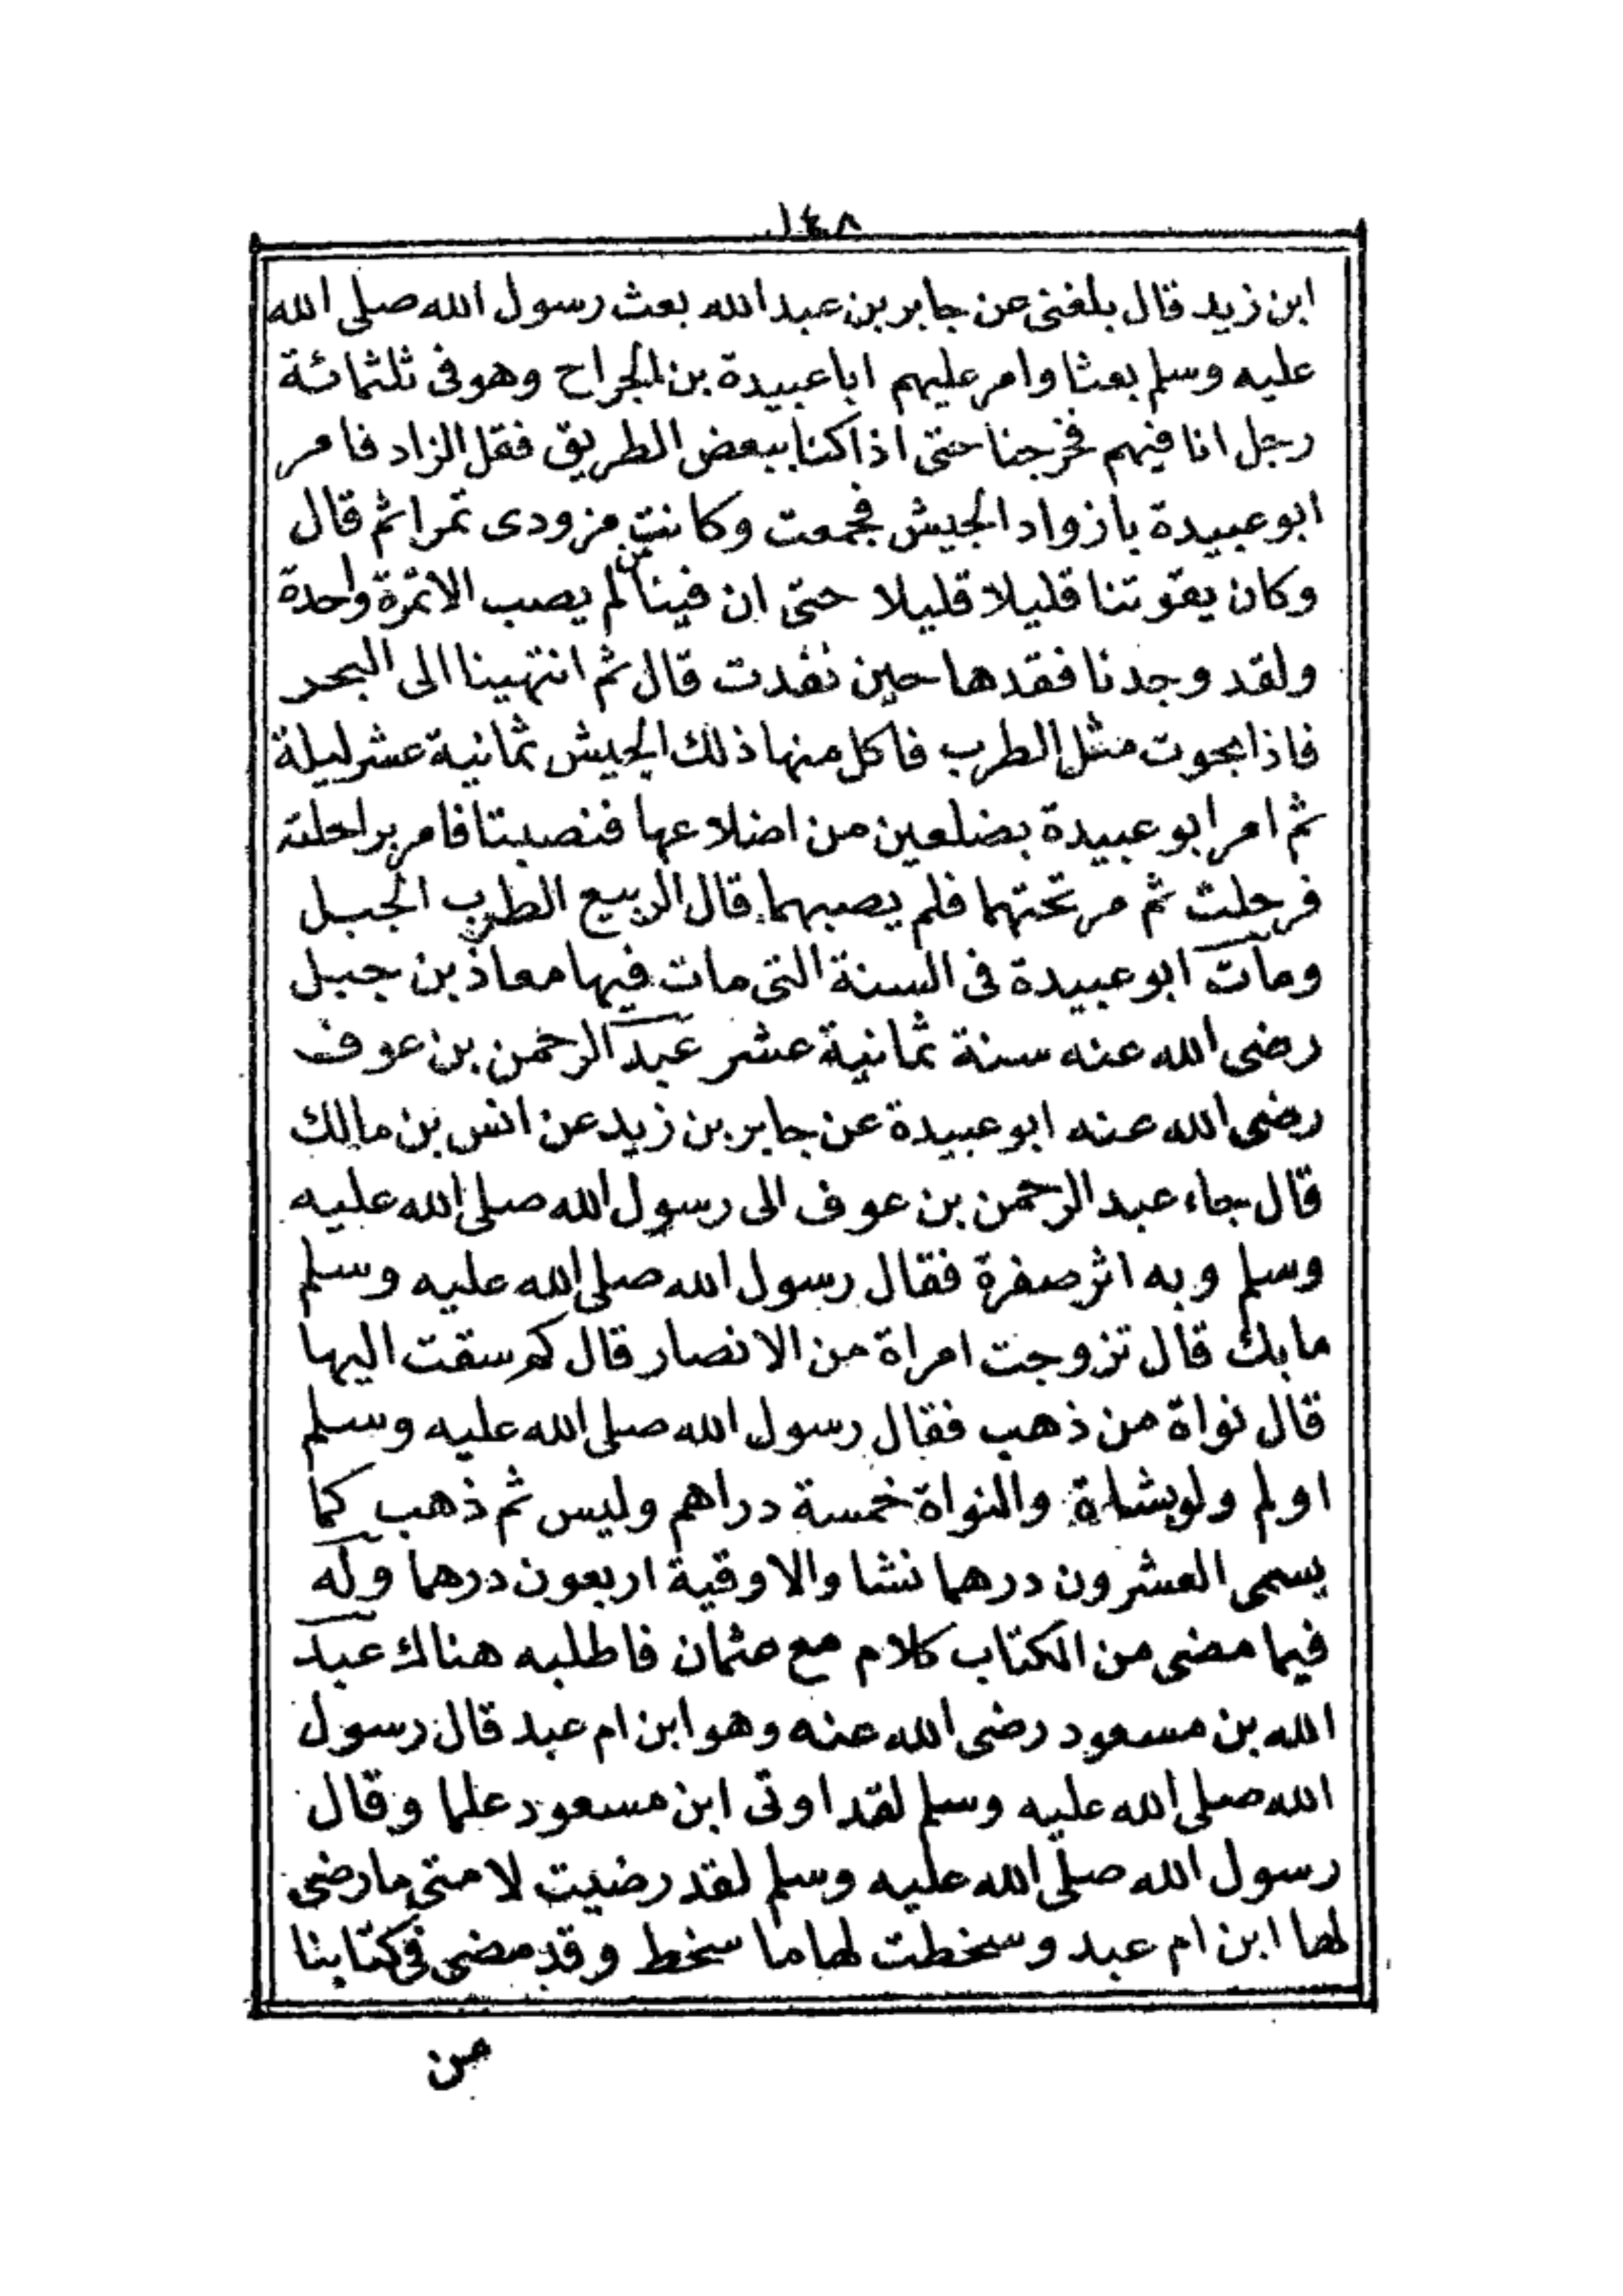 ١٤٨
ابن زيد قال بلغنى عن جابر بن عبد الله بعث رسول الله صلى الله
عليه وسلم بعثا وامر عليهم ابا عبيدة بن الجراح وهو فى ثلثمائة
رجل انا فيهم فخرجنا حتى اذا كنا ببعض الطريق فقل الزاد فامر
ابو عبيدة بازواد الجيش فجمعت وكانت مزودى تمرا ثم قال
وكان يقوتنا قليلا قليلا حتى ان فينا من لم يصب الا تمرة واحدة
ولقد وجدنا فقدها حين نفدت قال ثم انتهينا الى البحر
فاذا بحوت مثل الطرب فاكل منها ذلك الجيش ثمانية عشر ليلة
ثم امر ابو عبيدة بضلعين من اضلاعها فنصبتا فامر براحلته
فرحلت ثم مر تحتهما فلم يصبهما قال الربيع الطرب الجبل
ومات ابو عبيدة فى السنة التى مات فيها معاذ بن جبل
رضى الله عنه سنة ثمانية عشر عبد الرحمن بن عوف
رضى الله عنه ابو عبيدة عن جابر بن زيد عن انس بن مالك
قال جاء عبد الرحمن بن عوف الى رسول الله صلى الله عليه
وسلم وبه اثر صفرة فقال رسول الله صلى الله عليه وسلم
ما بك قال تزوجت امراة من الانصار قال كم سقت اليها
قال نواة من ذهب فقال رسول الله صلى الله عليه وسلم
اولم ولو بشاة والنواة خمسة دراهم وليس ثم ذهب كما
يسمى العشرون درهما نشا والاوقية اربعون درهما وله
فيما مضى من الكتاب كلام مع عثمان فاطلبه هناك عبد
الله بن مسعود رضى الله عنه وهو ابن ام عبد قال رسول
الله صلى الله عليه وسلم لقد اوتى ابن مسعود علما وقال
رسول الله صلّى الله عليه وسلم لقد رضيت لامتى ما رضى
لها ابن ام عبد وسخطت لها ما سخط وقد مضى فى كتابنا
من